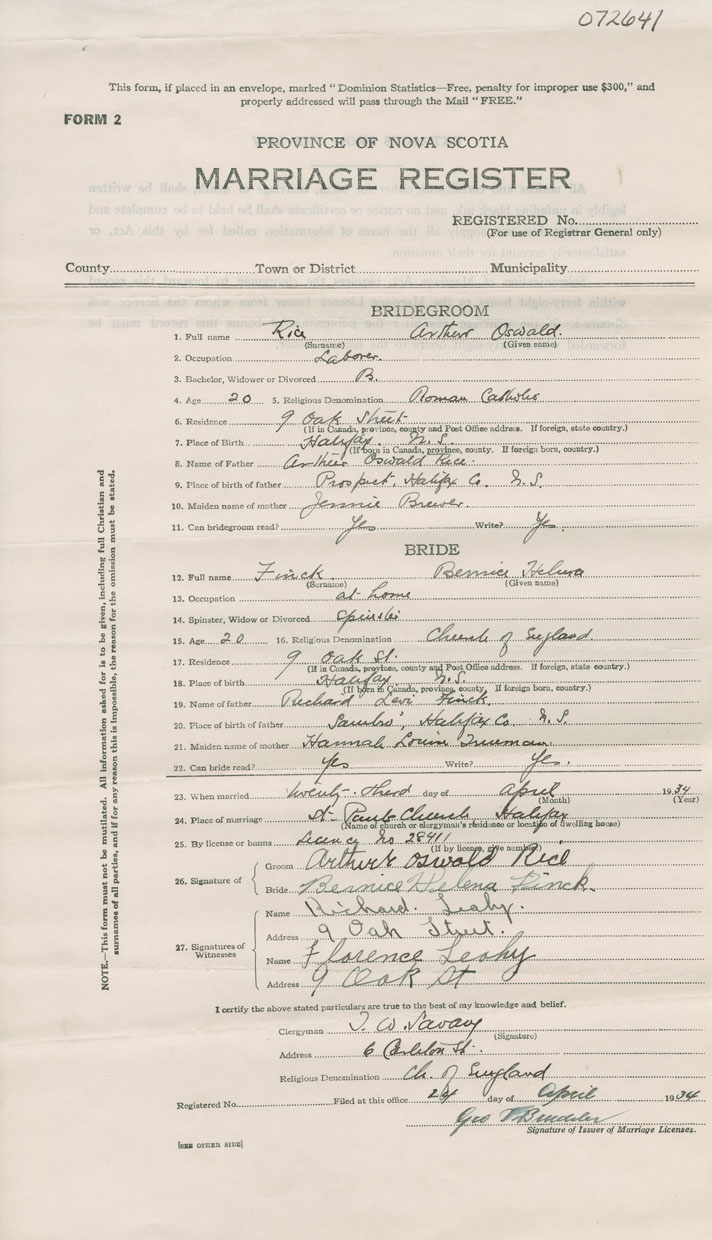 072641
This form, if placed in an envelope, marked "Dominion Statistics—Free, penalty for improper use $300," and
properly addressed will pass through the Mail "FREE."
FORM 2
PROVINCE OF NOVA SCOTIA
MARRIAGE REGISTER
REGISTERED No.
(For use of Registrar General only)
County Town or District Municipality
BRIDEGROOM
1. Full name Rice Arthur Oswald.
(Surname) (Given name)
2. Occupation Laborer.
3. Bachelor, Widower or Divorced B.
4. Age 20 5. Religious Denomination Roman Catholic
6. Residence 9 Oak Street
(If in Canada, province, county and Post Office address. If foreign, state country.)
7. Place of Birth Halifax. N.S.
(If born in Canada, province, county. If foreign born, country.)
8. Name of Father Arthur Oswald Rice.
9. Place of birth of father Prospect, Halifax Co. N.S.
10. Maiden name of mother Jennie Brewer.
11. Can bridegroom read? Yes Write? Yes.
BRIDE
12. Full name Finck Bernice Helena
(Surname) (Given name)
13. Occupation at home
14. Spinster, Widow or Divorced Spinster
15. Age 20 16. Religious Denomination Church of England.
17. Residence 9 Oak St.
(If in Canada, province, county and Post Office address. If foreign, state country.)
18. Place of birth Halifax, N.S.
(If born in Canada, province, county. If foreign born, country.)
19. Name of father Richard Levi Finck.
20. Place of birth of father Sambro, Halifax Co. N.S.
21. Maiden name of mother Hannah Louise
22. Can bride read? Yes Write? Yes.
23. When married twenty-third day of April 1934
(Month) (Year)
24. Place of marriage St. Pauls Church Halifax
(Name of church or clergyman's residence or location of dwelling house)
25. By license or banns No 28411
(If by license, give number)
26. Signature of
Groom Arthur Oswald Rice
Bride Bernice Helena Finck.
27. Signatures of Witnesses
Name Richard. Leahy.
Address 9 Oak Street.
Name Florence Leahy
Address 9 Oak St
I certify the above stated particulars are true to the best of my knowledge and belief.
Clergyman T. W. Savary
(Signature)
Address 6 Carleton St.
Religious Denomination Ch. of England
Registered No. Filed at this office 24 day of April 1934
Geo
Signature of Issuer of Marriage Licenses.
[SEE OTHER SIDE]
NOTE.—This form must not be mutilated. All information asked for is to be given, including full Christian and
surnames of all parties, and if for any reason this is impossible, the reason for the omission must be stated.